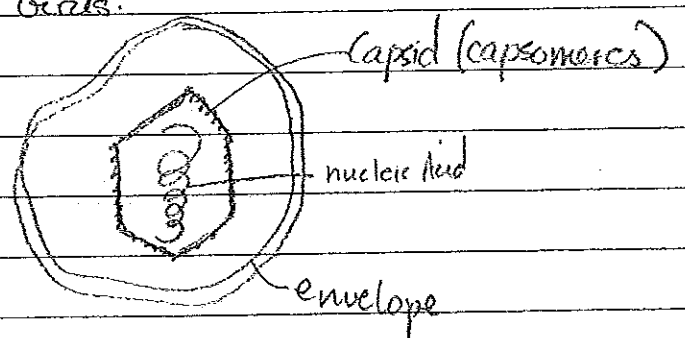 virus.
Capsid (capsomeres)
nucleic Acid
envelope